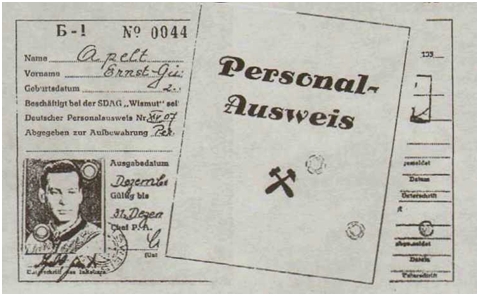 Б-I № 0044
Name Apelt
Vorname Ernst-Gü
Geburtsdatum 2.
Beschäftigt bei der SDAG „Wismut" seit
Deutscher Personalausweis Nr. XV 07
Abgegeben zur Aufbewahrung Per
Ausgabedatum
Dezembe
Gültig bis
31. Dezem
Chef P.A.
Personal-
Ausweis
gemeldet
Datum
Unterschrift
abgemeldet
Datum
Unterschrift